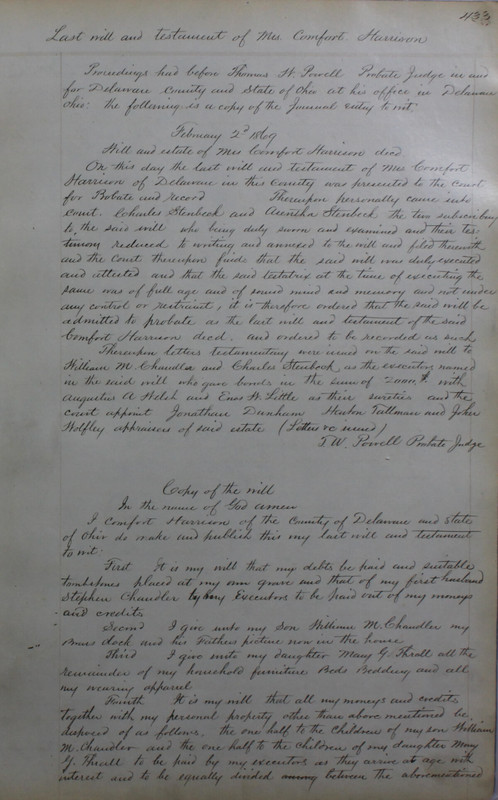 433
Last will and testament of Mrs Comfort Harrison
Proceedings had before Thomas W. Powell Probate Judge in and
for Delaware County and State of Ohio at his office in Delaware
Ohio: the following is a copy of the Journal entry to wit
February 2d 1869
Will and estate of Mrs Comfort Harrison decd
On this day the last will and testament of Mrs Comfort
Harrison of Delaware in this County was presented to the Court
for Probate and record Thereupon personally came into
court. Charles Stenbeck and Stenbeck the two subscribing
to, the said will who being duly sworn and examined and their tes-
timony reduced to writing and annexed to the will and filed therewith
and the Court thereupon finds that the said will was duly executed
and attested and that the said testatrix at the time of executing the
same was of full age and of sound mind and memory and not under
any control or restraint, it is therefore ordered that the said will be
admitted to probate as the last will and testament of the said
Comfort Harrison decd. and ordered to be recorded as such
Thereupon letters testamentary were issued on the said will to
William M. Chandler and Charles Stenbeck, as the executors named
in the said will who gave bonds in the sum of with
Augustus A Welsh and Enos W. Little as their sureties and the
court appoint Jonathan Dunham Tuttman and John
Wolfley appraisers of said estate (Letters &c issued)
T.W. Powell Probate Judge
Copy of the will
In the name of God amen
I Comfort Harrison of the County of Delaware and state
of Ohio do make and publish this my last will and testament
to wit:
First It is my will that my debts be paid and suitable
tombstones placed at my own grave and that of my first husband
Stephen Chandler by my Executors to be paid out of my moneys
and credits
Second I give unto my Son William M. Chandler my
Brass clock and his Fathers picture now in the house
Third I give unto my daughter Mary G. Thrall all the
remainder of my household furniture Beds Bedding and all
my wearing apparel
Fourth It is my will that all my moneys and credits
together with my personal property other than above mentioned be
disposed of as follows. the one half to the Children of my son William
M. Chandler and the one half to the Children of my daughter Mary
G. Thrall to be paid by my executors as they arrive at age with
interest and to be equally divided among between the abovementioned